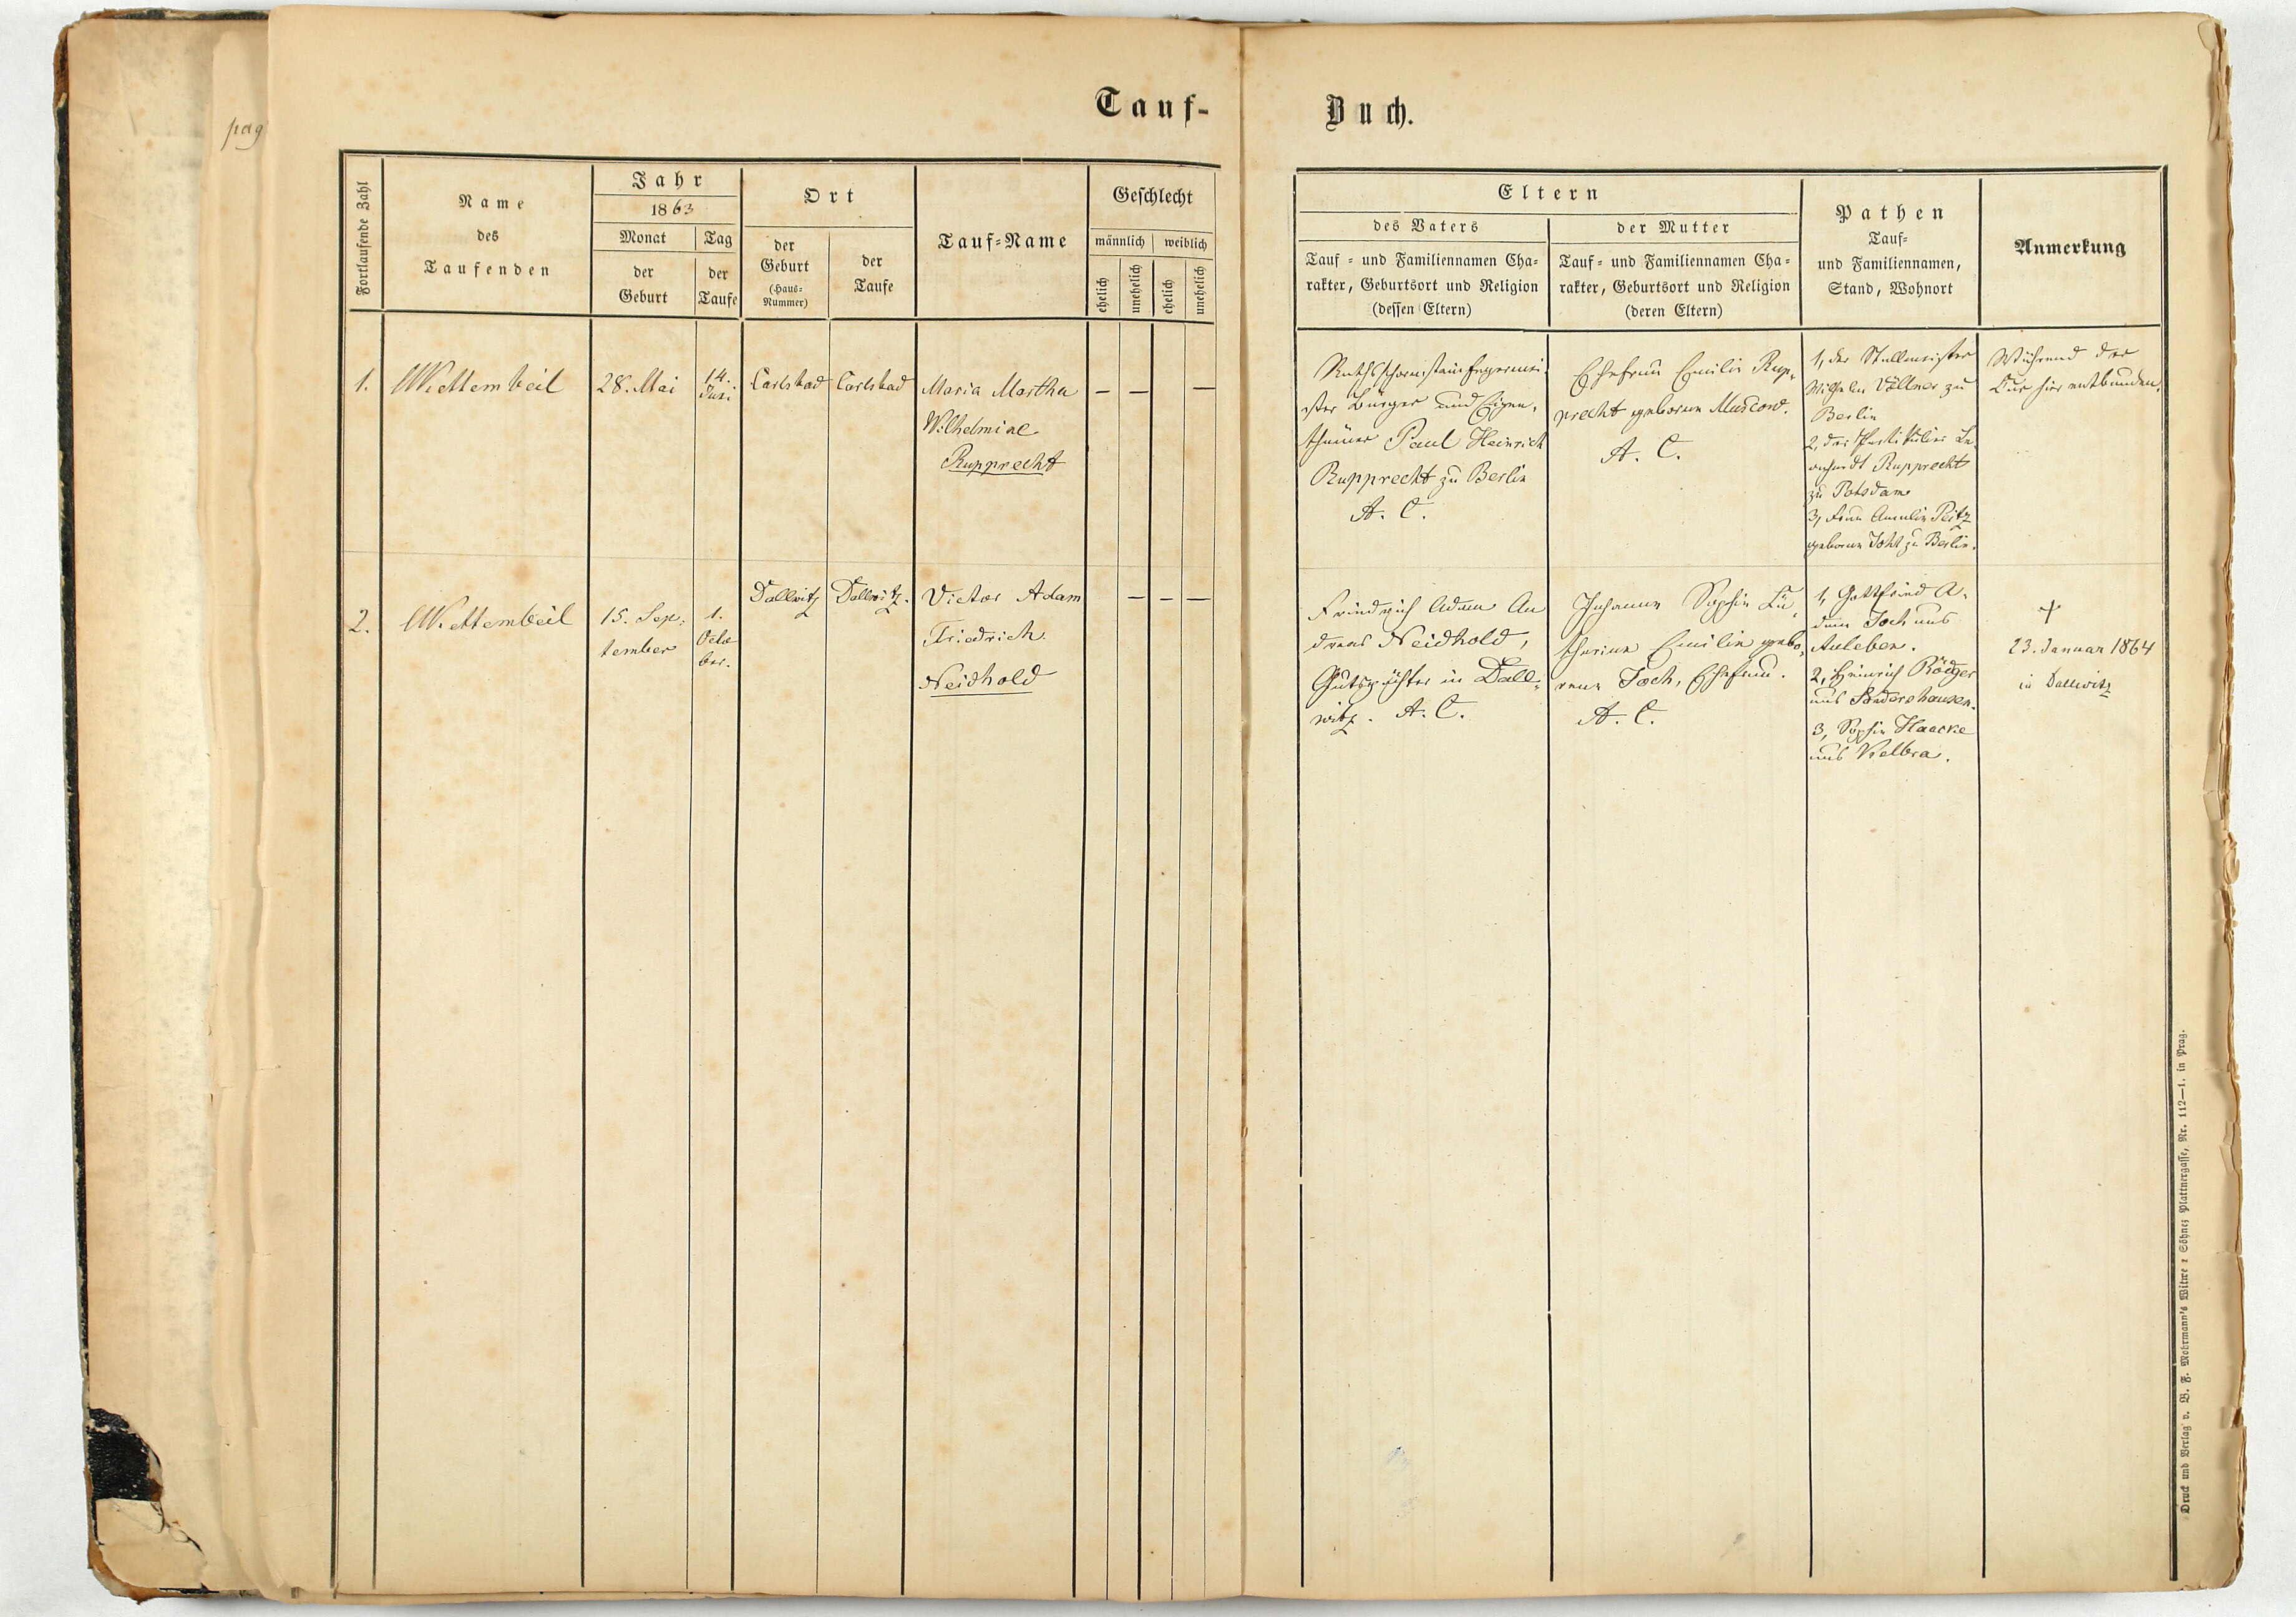 pag
Tauf-
Buch.
Fortlaufende Zahl
Name
des
Taufenden
Jahr
1863
Monat
Tag
der
Geburt
der
Taufe
Ort
der
Geburt
(Haus-
Nummer)
der
Taufe
Tauf-Name
Geschlecht
männlich
weiblich
ehelich
unehelich
ehelich
unehelich
Eltern
des Vaters
der Mutter
Tauf- und Familiennamen Cha-
rakter, Geburtsort und Religion
(dessen Eltern)
Tauf- und Familiennamen Cha-
rakter, Geburtsort und Religion
(deren Eltern)
Pathen
Tauf-
und Familiennamen,
Stand, Wohnort
Anmerkung
1.
Wettembeil
28. Mai
14.
Juni
Carlsbad
Carlsbad
Maria Martha
Wilhelmine
Rupprecht
— — —
Rathsschornsteinfegermei-
ster Bürger und Eigen-
thümer Paul Heinrich
Rupprecht zu Berlin
A. C.
Ehefrau Emilie Rup-
precht geborene Muscow.
A. C.
1, der Stallmeister
Wilhelm Völlner zu
Berlin
2, der Partikulier Le-
onhardt Rupprecht
zu Potsdam
3, Frau Amalie Peitz
geborene Joht zu Berlin.
Während der
Cur hier entbunden.
2.
Wettembeil
15. Sep-
tember
1.
Octo
ber.
Dallwitz
Dallwitz.
Victor Adam
Friedrich
Neidhold
— — —
Friedrich Adam An
dreas Neidhold,
Gutspächter in Dall-
witz. A. C.
Johanne Sophie Ka-
tharina Emilie gebo-
rene Joch, Ehefrau.
A. C.
1, Gottfried A-
dam Joch aus
Auleben.
2, Heinrich Rödger
aus Sondershausen.
3, Sophie Haacke
aus Kelbra.
†
23. Januar 1864
in Dallwitz
Druck und Verlag v. W. F. Mohrmann's Witwe & Söhne; Plattnergasse, Nr. 112—1. in Prag.